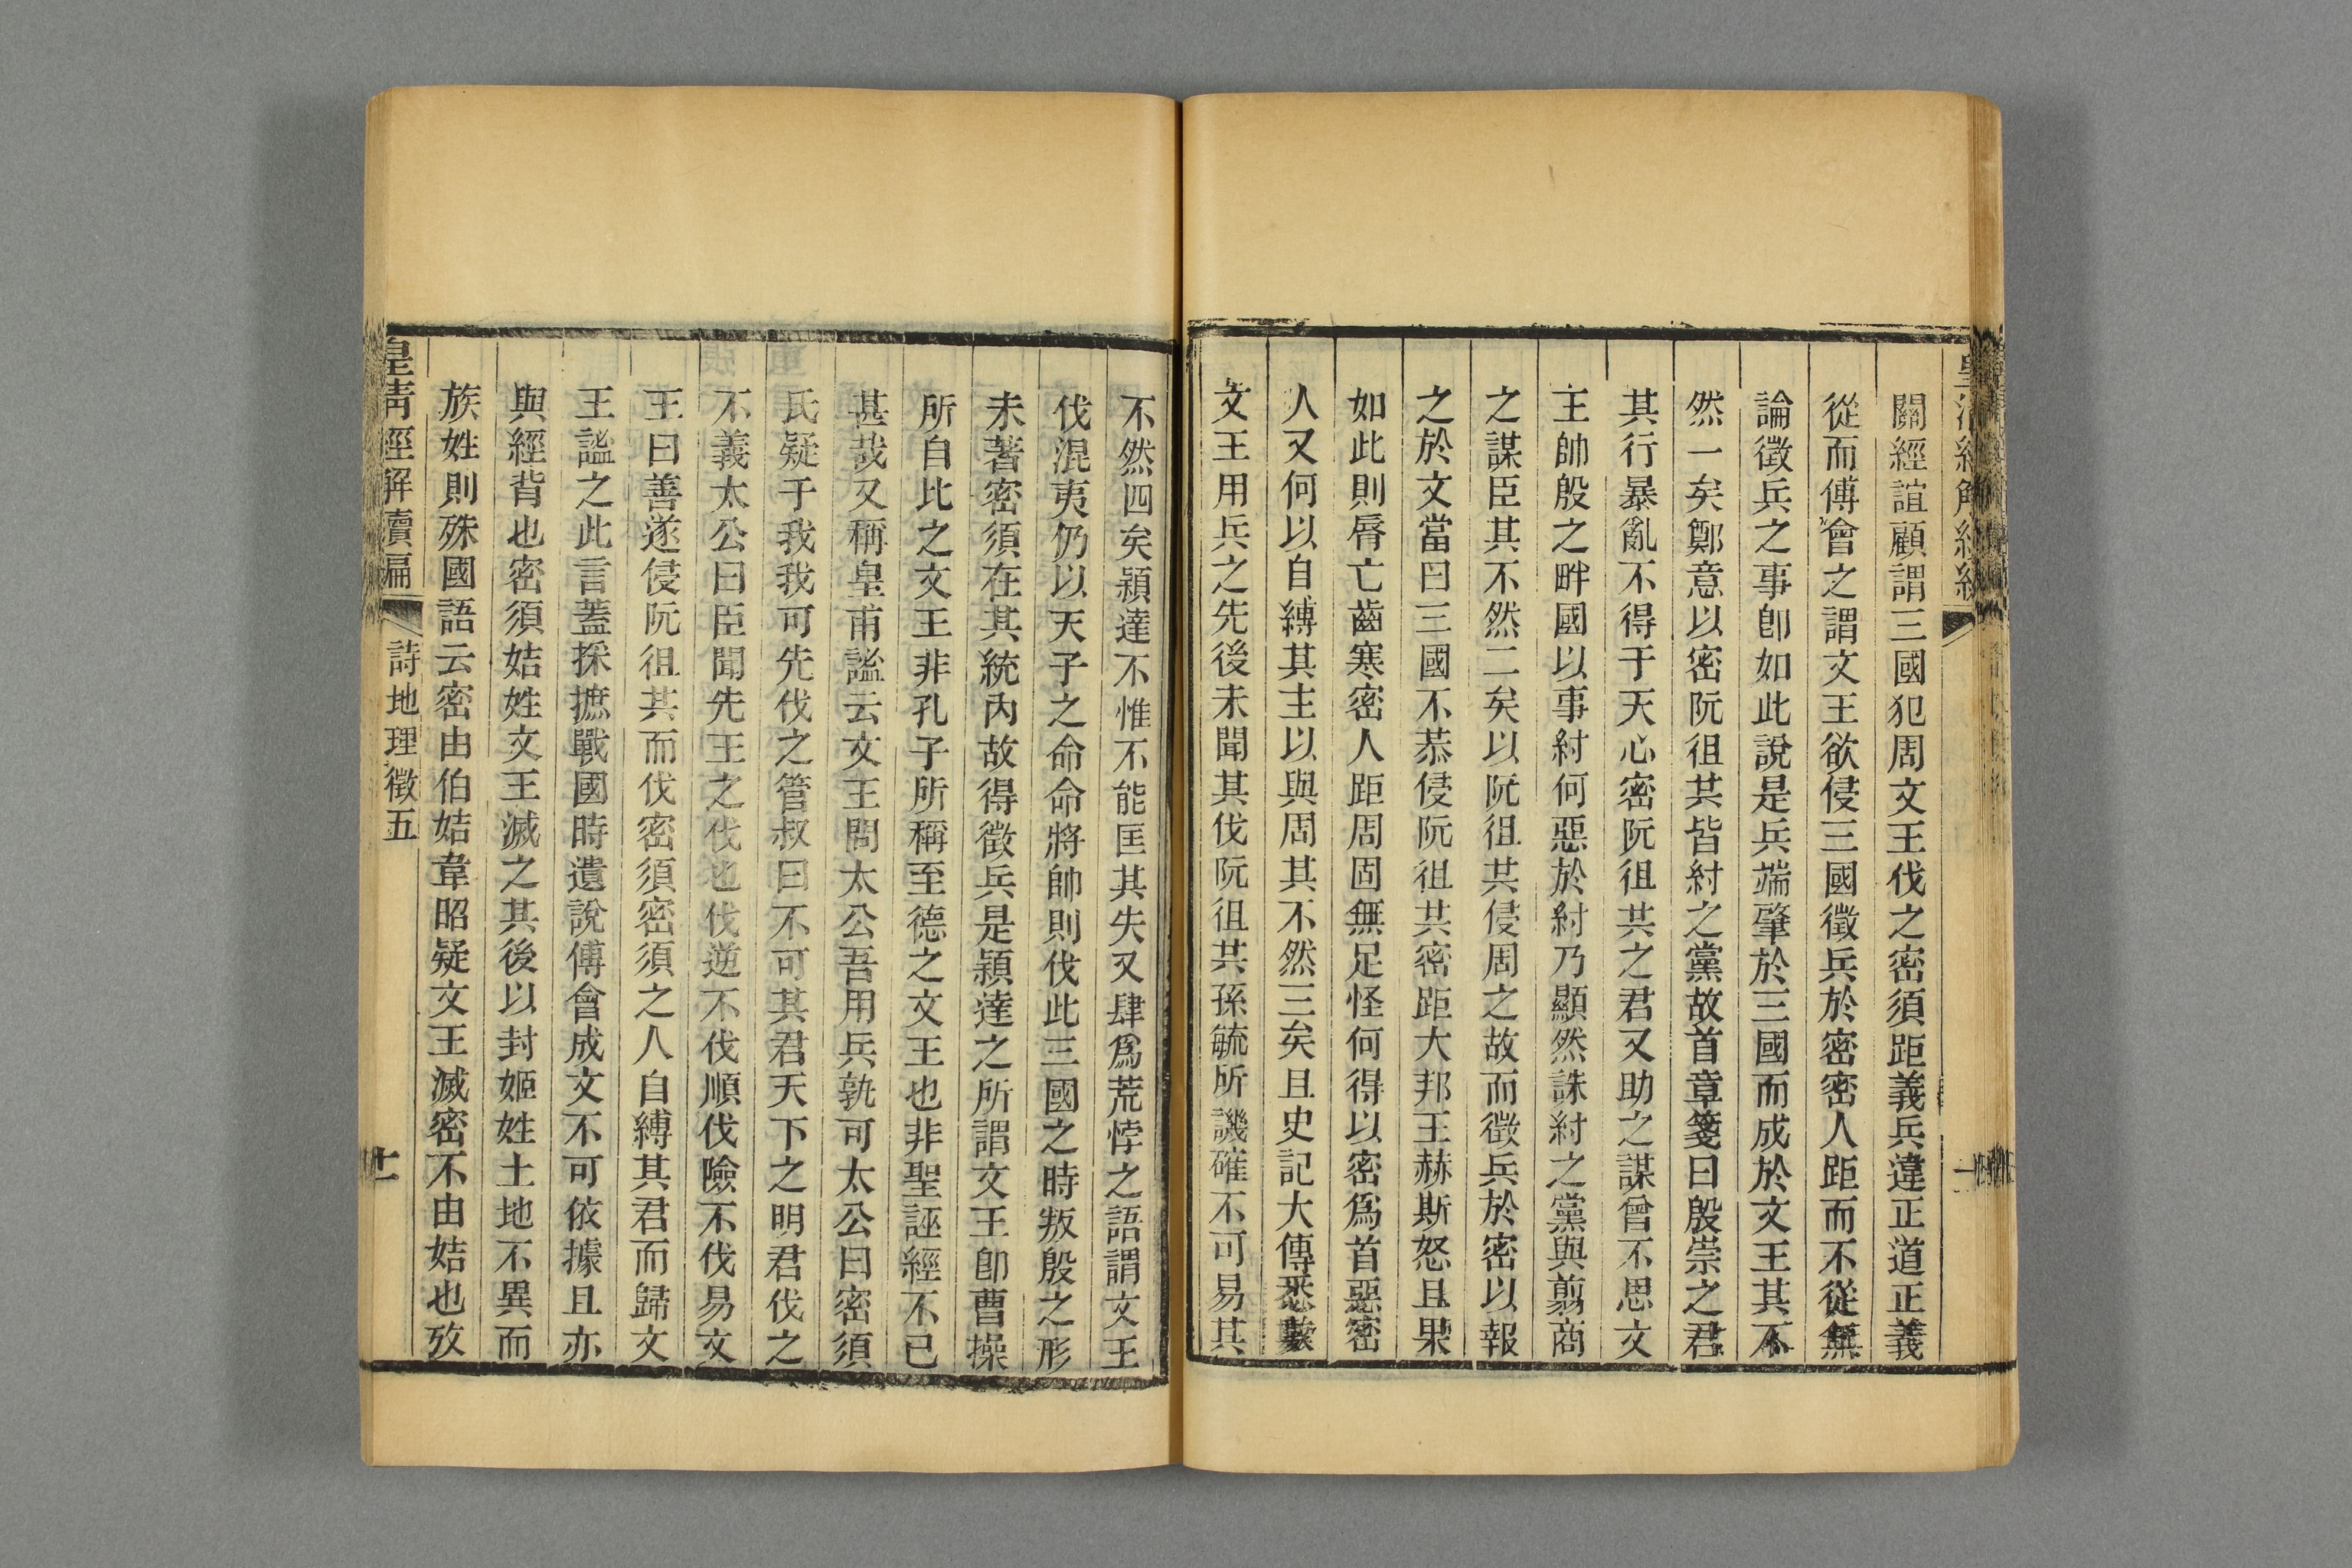 關經誼顧謂三國犯周文王伐之密須距義兵違正道正義
從而傅會之謂文王欲侵三國徵兵於密密人距而不從無
論徵兵之事卽如此說是兵端肇於三國而成於文王其不
然一矣鄭意以密阮徂其皆紂之黨故首章箋曰殷崇之君
其行暴亂不得于天心密阮徂共之君又助之謀曾不思文
王帥殷之畔國以事紂何惡於紂乃顯然誅紂之黨與翦商
之謀臣其不然二矣以阮徂共侵周之故而徵兵於密以報
之於文當曰三國不恭侵阮徂共密距大邦王赫斯怒且果
如此則脣亡齒寒密人距周固無足怪何得以密爲首惡密
人又何以自縛其主以與周其不然三矣且史記大傳悉數
文王用兵之先後未聞其伐阮徂共孫毓所譏確不可易其
不然四矣穎達不惟不能匡其失又肆爲荒悖之語謂文王
伐混夷仍以天子之命命將帥則伐此三國之時叛殷之形
未著密須在其統內故得徵兵是穎達之所謂文王卽曹操
所自比之文王非孔子所稱至德之文王也非聖誣經不已
甚哉又稱皇甫謐云文王問太公吾用兵孰可太公曰密須
氏疑于我我可先伐之管叔曰不可其君天下之明君伐之
不義太公曰臣聞先王之伐也伐逆不伐順伐險不伐易文
王曰善遂侵阮徂其而伐密須密須之人自縛其君而歸文
王謐之此言蓋採摭戰國時遺說傅會成文不可依據且亦
與經背也密須姞姓文王滅之其後以封姬姓土地不異而
族姓則殊國語云密由伯姞韋昭疑文王滅密不由姞也攷
皇淸經解續編
詩地理徵五
十一